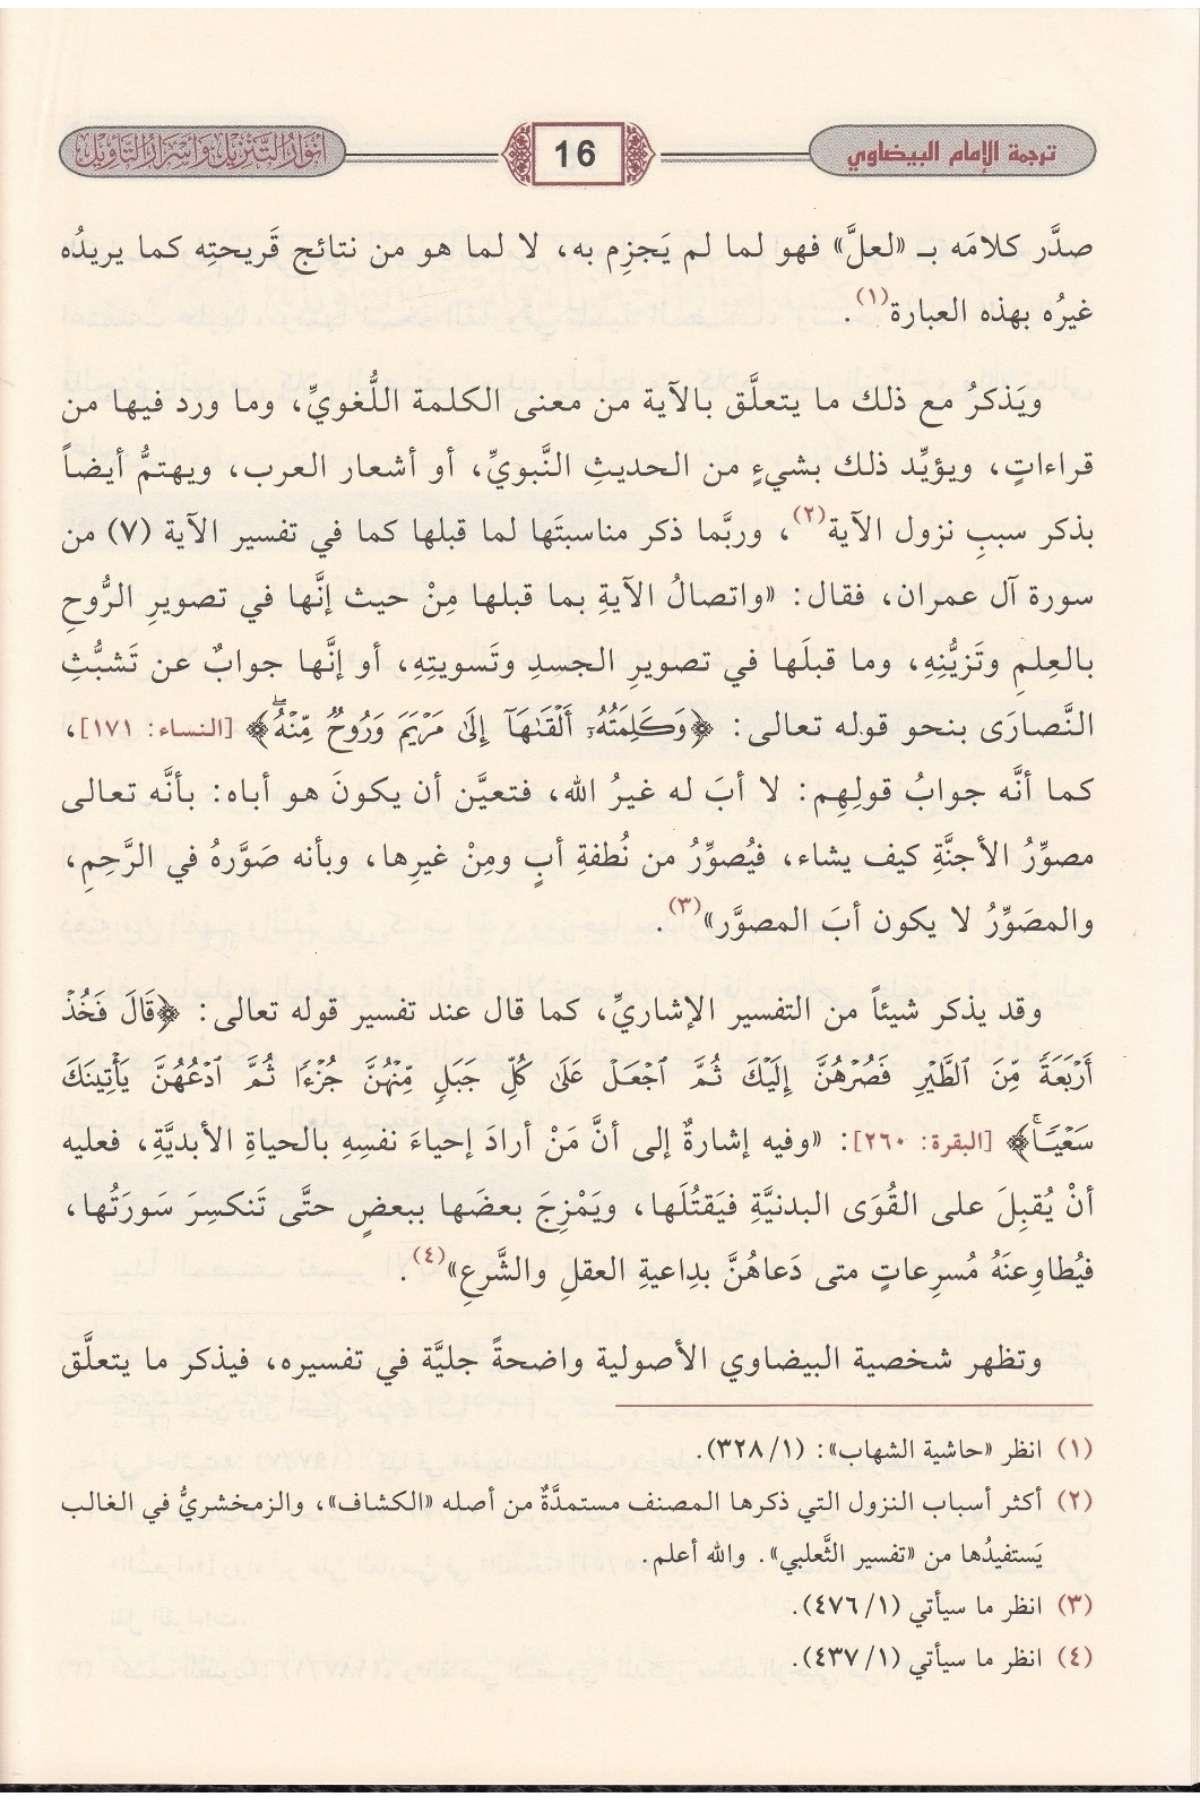 ترجمة الإمام البيضاوي
16
أنوار التنزيل وأسرار التأويل
صدَّر كلامَه بـ «لعلَّ» فهو لما لم يَجزِم به، لا لما هو من نتائج قَريحتِه كما يريدُه
غيرُه بهذه العبارة(١).
ويَذكرُ مع ذلك ما يتعلَّق بالآية من معنى الكلمة اللُّغويِّ، وما ورد فيها من
قراءاتٍ، ويؤيِّد ذلك بشيءٍ من الحديثِ النَّبويِّ، أو أشعار العرب، ويهتمُّ أيضاً
بذكر سببِ نزول الآية(٢)، وربَّما ذكر مناسبتَها لما قبلها كما في تفسير الآية (٧) من
سورة آل عمران، فقال: «واتصالُ الآيةِ بما قبلها مِنْ حيث إنَّها في تصويرِ الرُّوحِ
بالعِلمِ وتَزيُّنِهِ، وما قبلَها في تصويرِ الجسدِ وتَسويتِهِ، أو إنَّها جوابٌ عن تَشبُّثِ
النَّصارَى بنحو قوله تعالى: ﴿وَكَلِمَتُهُۥٓ أَلۡقَىٰهَآ إِلَىٰ مَرۡيَمَ وَرُوحٞ مِّنۡهُۖ﴾ [النساء: ١٧١]،
كما أنَّه جوابُ قولِهِم: لا أبَ له غيرُ الله، فتعيَّن أن يكونَ هو أباه: بأنَّه تعالى
مصوِّرُ الأجنَّةِ كيف يشاء، فيُصوِّرُ من نُطفةِ أبٍ ومِنْ غيرِها، وبأنه صَوَّرهُ في الرَّحِمِ،
والمصَوِّرُ لا يكون أبَ المصوَّر»(٣).
وقد يذكر شيئاً من التفسير الإشاريِّ، كما قال عند تفسير قوله تعالى: ﴿قَالَ فَخُذۡ
أَرۡبَعَةٗ مِّنَ ٱلطَّيۡرِ فَصُرۡهُنَّ إِلَيۡكَ ثُمَّ ٱجۡعَلۡ عَلَىٰ كُلِّ جَبَلٖ مِّنۡهُنَّ جُزۡءٗا ثُمَّ ٱدۡعُهُنَّ يَأۡتِينَكَ
سَعۡيٗاۚ﴾ [البقرة: ٢٦٠]: «وفيه إشارةٌ إلى أنَّ مَنْ أرادَ إحياءَ نفسِهِ بالحياةِ الأبديَّةِ، فعليه
أنْ يُقبِلَ على القُوَى البدنيَّةِ فيَقتُلَها، ويَمْزِجَ بعضَها ببعضٍ حتَّى تَنكسِرَ سَورَتُها،
فيُطاوِعنَهُ مُسرِعاتٍ متى دَعاهُنَّ بدِاعيةِ العقلِ والشَّرعِ»(٤).
وتظهر شخصية البيضاوي الأصولية واضحةً جليَّة في تفسيره، فيذكر ما يتعلَّق
(١) انظر «حاشية الشهاب»: (١/ ٣٢٨).
(٢) أكثر أسباب النزول التي ذكرها المصنف مستمدَّةٌ من أصله «الكشاف»، والزمخشريُّ في الغالب
يَستفيدُها من «تفسير الثَّعلبي». والله أعلم.
(٣) انظر ما سيأتي (١/ ٤٧٦).
(٤) انظر ما سيأتي (١/ ٤٣٧).